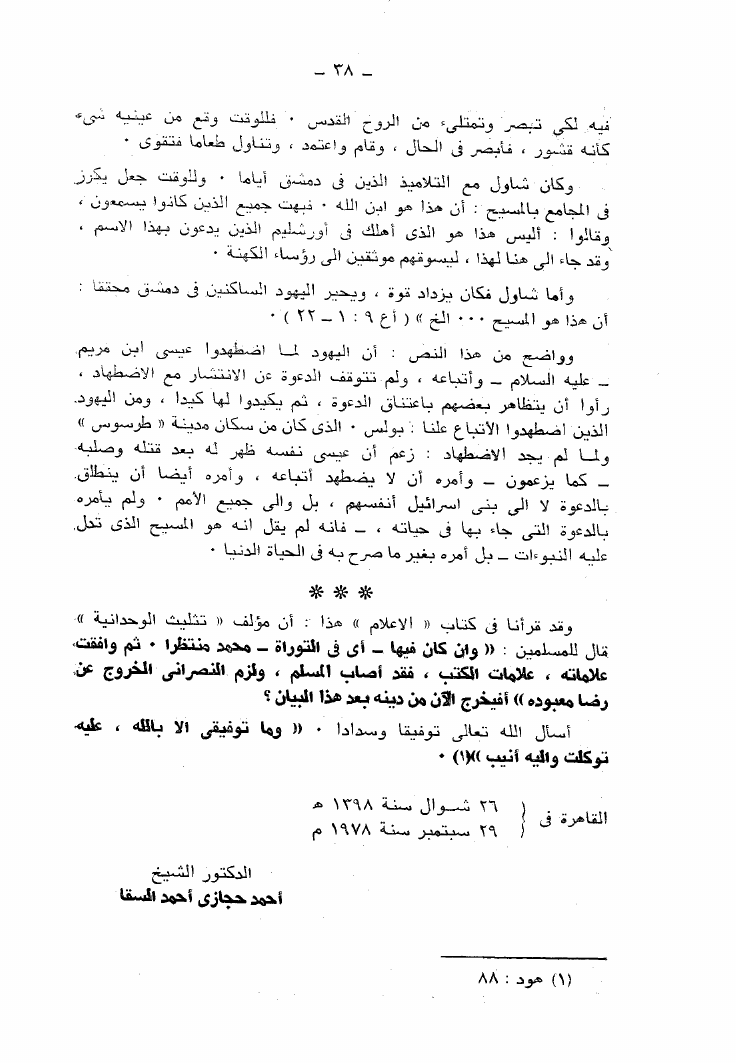 – ٣٨ –
فيه لكى تبصر وتمتلىء من الروح القدس ٠ فللوقت وقع من عينيه شىء
كأنه قشور ، فأبصر فى الحال ، وقام واعتمد ، وتناول طعاما فتقوى ٠
وكان شاول مع التلاميذ الذين فى دمشق أياما ٠ وللوقت جعل يكرز
فى المجامع بالمسيح : أن هذا هو ابن الله ٠ فبهت جميع الذين كانوا يسمعون ،
وقالوا : أليس هذا هو الذى أهلك فى أورشليم الذين يدعون بهذا الاسم ،
وقد جاء الى هنا لهذا ، ليسوقهم موثقين الى رؤساء الكهنة ٠
وأما شاول فكان يزداد قوة ، ويحير اليهود الساكنين فى دمشق محققا :
أن هذا هو المسيح ٠٠٠ الخ » ( أع ٩ : ١ – ٢٢ ) ٠
وواضح من هذا النص : أن اليهود لما اضطهدوا عيسى ابن مريم
– عليه السلام – وأتباعه ، ولم تتوقف الدعوة عن الانتشار مع الاضطهاد ،
رأوا أن يتظاهر بعضهم باعتناق الدعوة ، ثم يكيدوا لها كيدا ، ومن اليهود
الذين اضطهدوا الأتباع علنا : بولس ٠ الذى كان من سكان مدينة « طرسوس »
ولما لم يجد الاضطهاد : زعم أن عيسى نفسه ظهر له بعد قتله وصلبه
– كما يزعمون – وأمره أن لا يضطهد أتباعه ، وأمره أيضا أن ينطلق
بالدعوة لا الى بنى اسرائيل أنفسهم ، بل والى جميع الأمم ٠ ولم يأمره
بالدعوة التى جاء بها فى حياته ، – فانه لم يقل انه هو المسيح الذى تدل
عليه النبوءات – بل أمره بغير ما صرح به فى الحياة الدنيا ٠
* * *
وقد قرأنا فى كتاب « الاعلام » هذا : أن مؤلف « تثليث الوحدانية »
قال للمسلمين : « وان كان فيها – أى فى التوراة – محمد منتظرا ٠ ثم وافقت
علاماته ، علامات الكتب ، فقد أصاب المسلم ، ولزم النصرانى الخروج عن
رضا معبوده » أفيخرج الآن من دينه بعد هذا البيان ؟
أسأل الله تعالى توفيقا وسدادا ٠ « وما توفيقى الا بالله ، عليه
توكلت واليه أنيب »(١) ٠
القاهرة فى { ٢٦ شوال سنة ١٣٩٨ هـ )
{ ٢٩ سبتمبر سنة ١٩٧٨ م )
الدكتور الشيخ
أحمد حجازى أحمد السقا
(١) هود : ٨٨